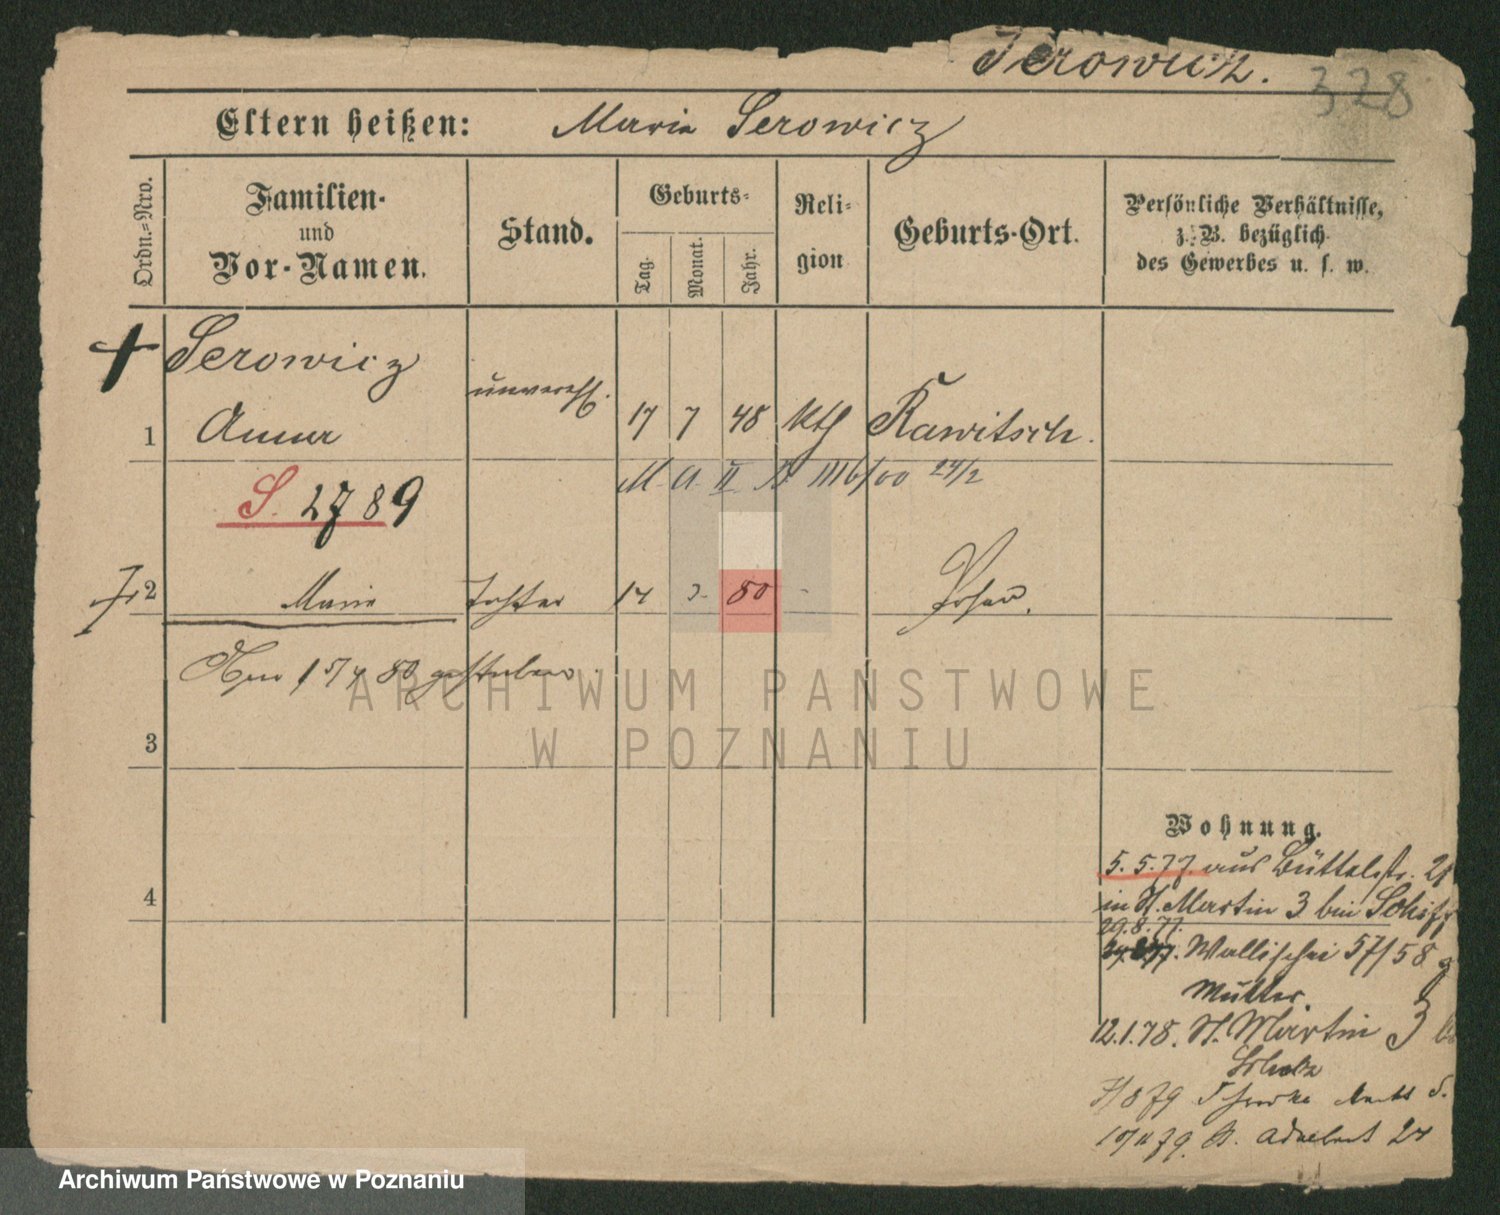 Serowicz.
328
Eltern heißen: Maria Serowicz
Ordn.=Nro.
Familien-
und
Vor-Namen.
Stand.
Geburts-
Tag.
Monat.
Jahr.
Reli-
gion
Geburts-Ort.
Persönliche Verhältnisse,
z. B. bezüglich
des Gewerbes u. s. w.
Serowicz
1 Anna unverehl. 17 7 48 kth Rawitsch.
M A II 24/2
S. 2789
2 Marie Tochter 14 80 Posen.
80 gestorben
3
4
Wohnung.
5.5.77. aus Büttelstr. 21
in St. Martin 3 bei Schiff
29.8.77.
Wallischei 57/58
Mutter.
12.1.78. St. Martin 3
Scholz
79
79 St. Adalbert 24
ARCHIWUM PAŃSTWOWE
W POZNANIU
Archiwum Państwowe w Poznaniu